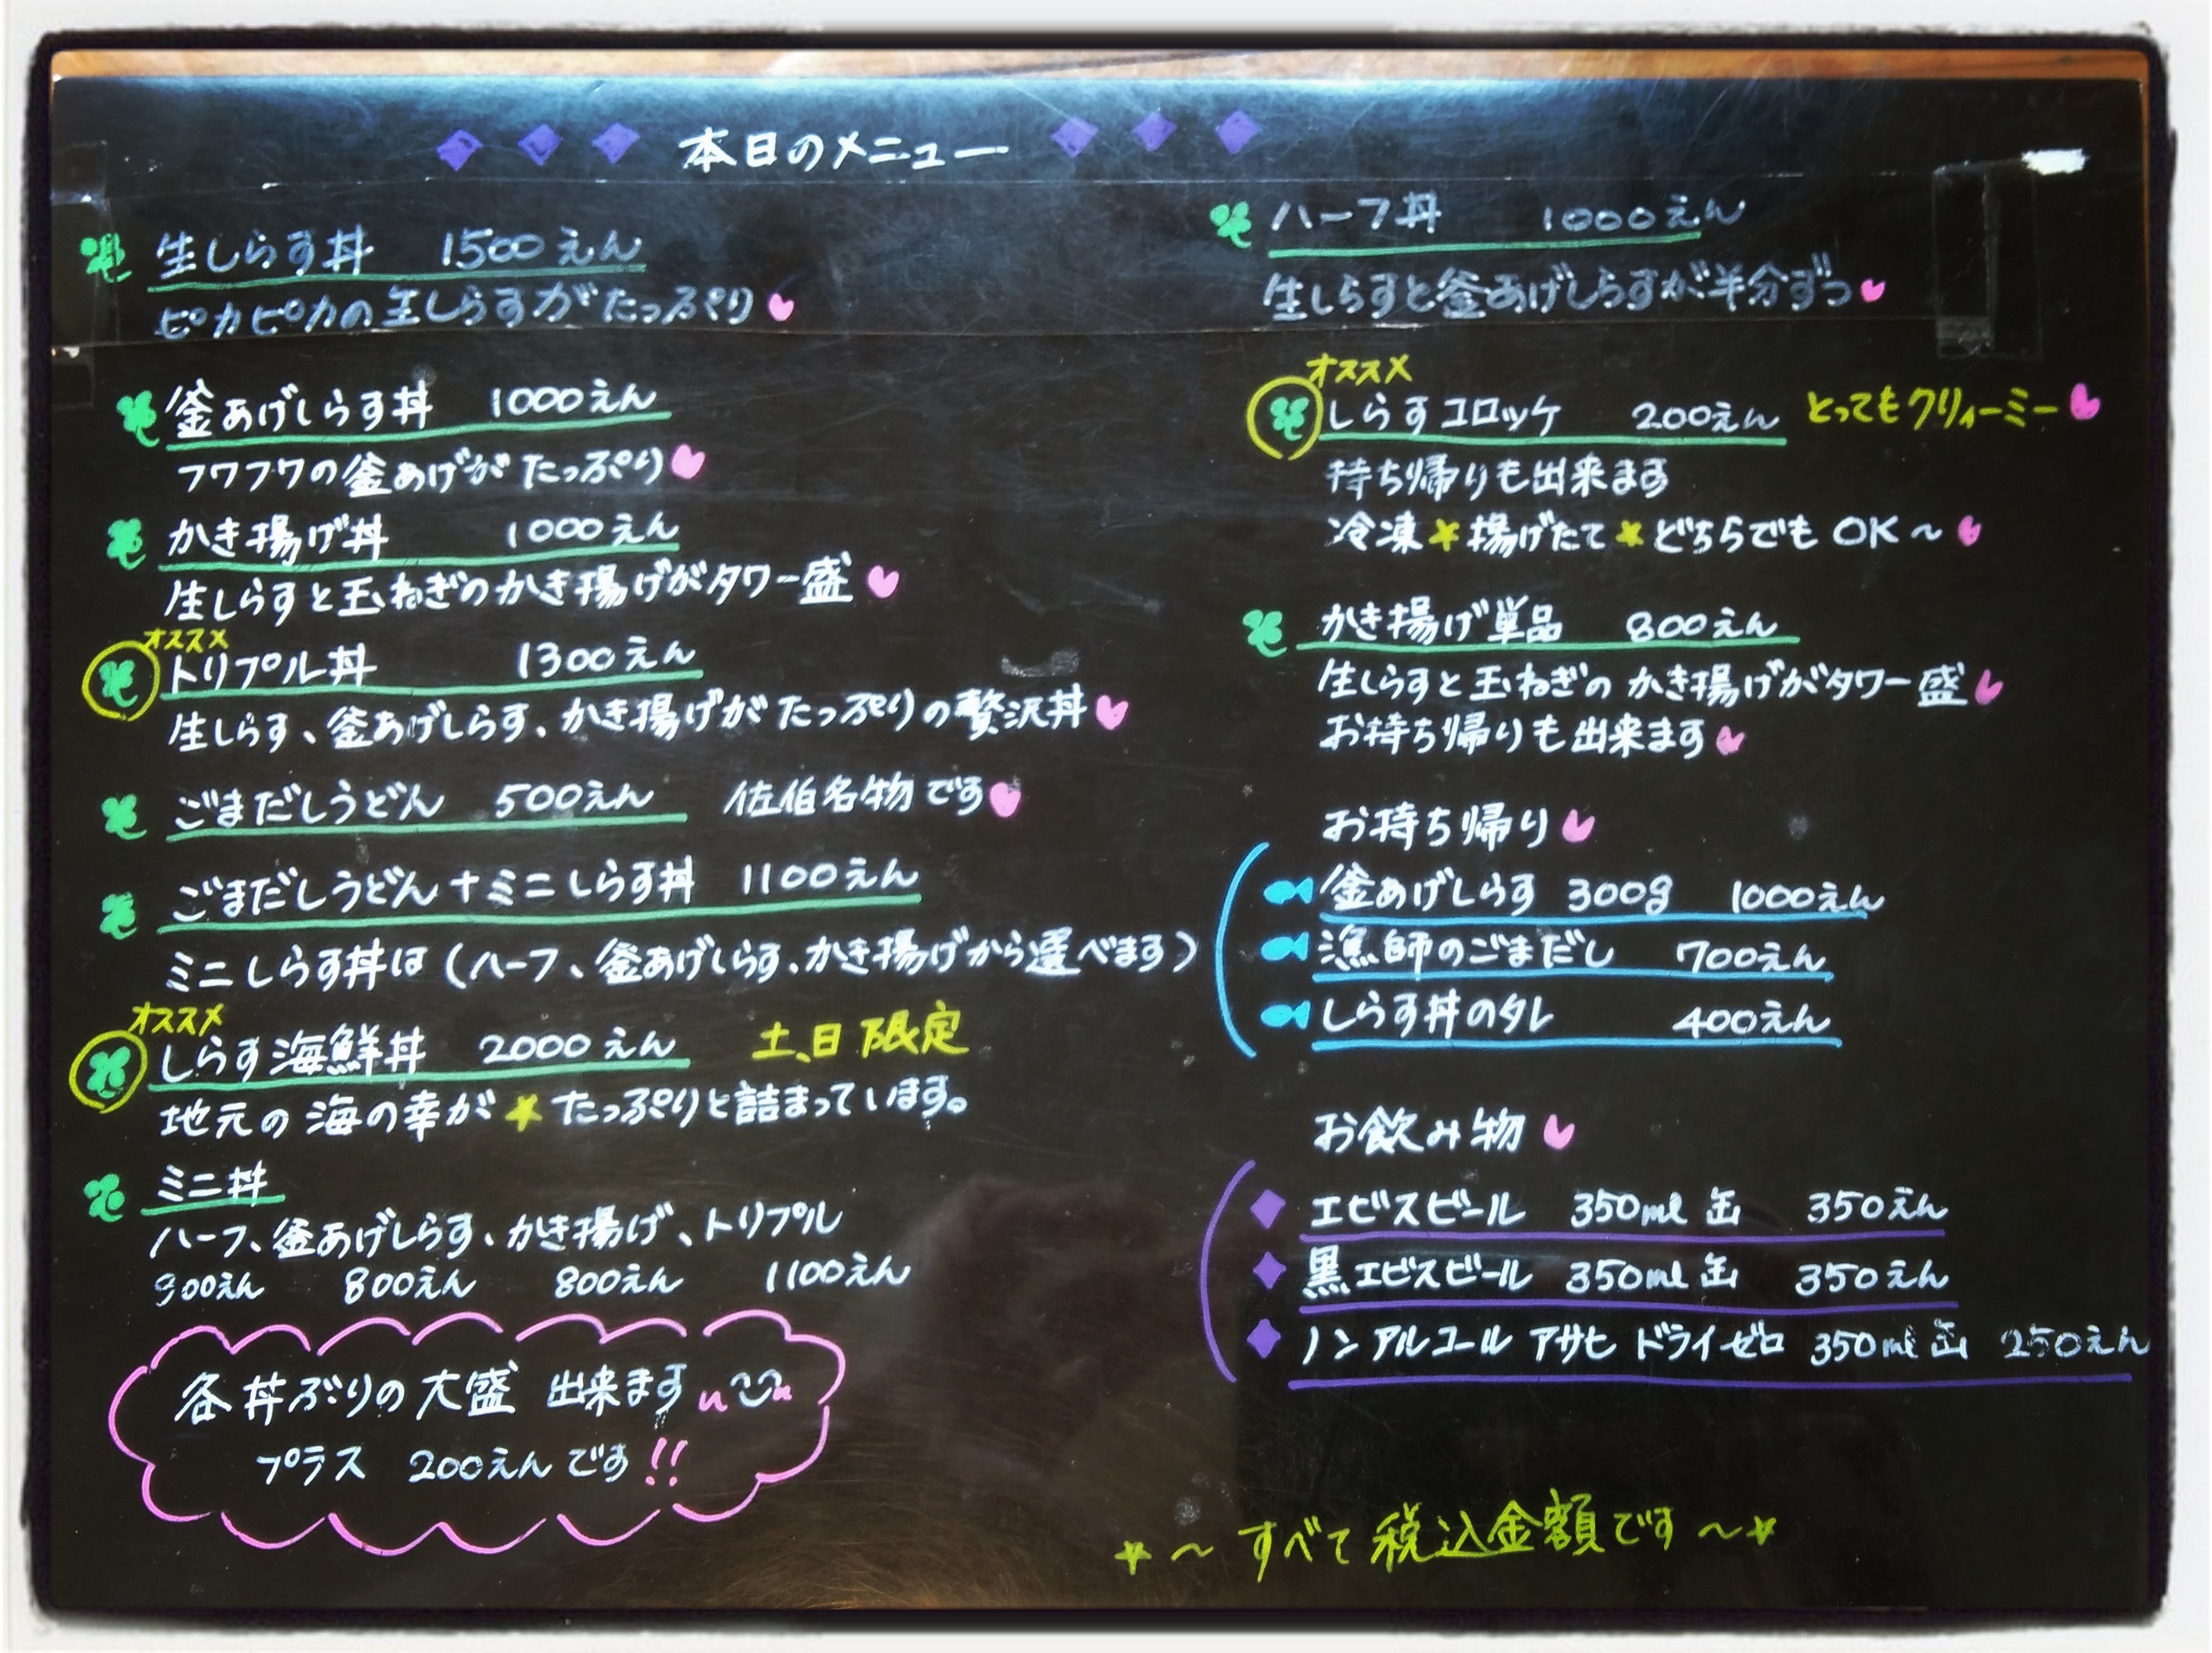 本日のメニュー
生しらす丼 1500えん
ピカピカの生しらすがたっぷり
釜あげしらす丼 1000えん
フワフワの釜あげがたっぷり
かき揚げ丼 1000えん
生しらすと玉ねぎのかき揚げがタワー盛
オススメ
トリプル丼 1300えん
生しらす、釜あげしらす、かき揚げがたっぷりの贅沢丼
ごまだしうどん 500えん 佐伯名物です
ごまだしうどん+ミニしらす丼 1100えん
ミニしらす丼は(ハーフ、釜あげしらす、かき揚げから選べます)
オススメ
しらす海鮮丼 2000えん 土、日限定
地元の海の幸が★たっぷりと詰まっています。
ミニ丼
ハーフ、釜あげしらす、かき揚げ、トリプル
えん 800えん 800えん 1100えん
各丼ぶりの大盛 出来ます
プラス 200えんです!!
ハーフ丼 1000えん
生しらすと釜あげしらすが半分ずつ
オススメ
しらすコロッケ 200えん とってもクリィーミー
持ち帰りも出来ます
冷凍★揚げたて★どちらでもOK~
かき揚げ単品 800えん
生しらすと玉ねぎのかき揚げがタワー盛
お持ち帰りも出来ます
お持ち帰り
釜あげしらす 300g 1000えん
漁師のごまだし 700えん
しらす丼のタレ 400えん
お飲み物
エビスビール 350ml缶 350えん
黒エビスビール 350ml缶 350えん
ノンアルコール アサヒ ドライゼロ 350ml缶 250えん
★~すべて税込金額です~★